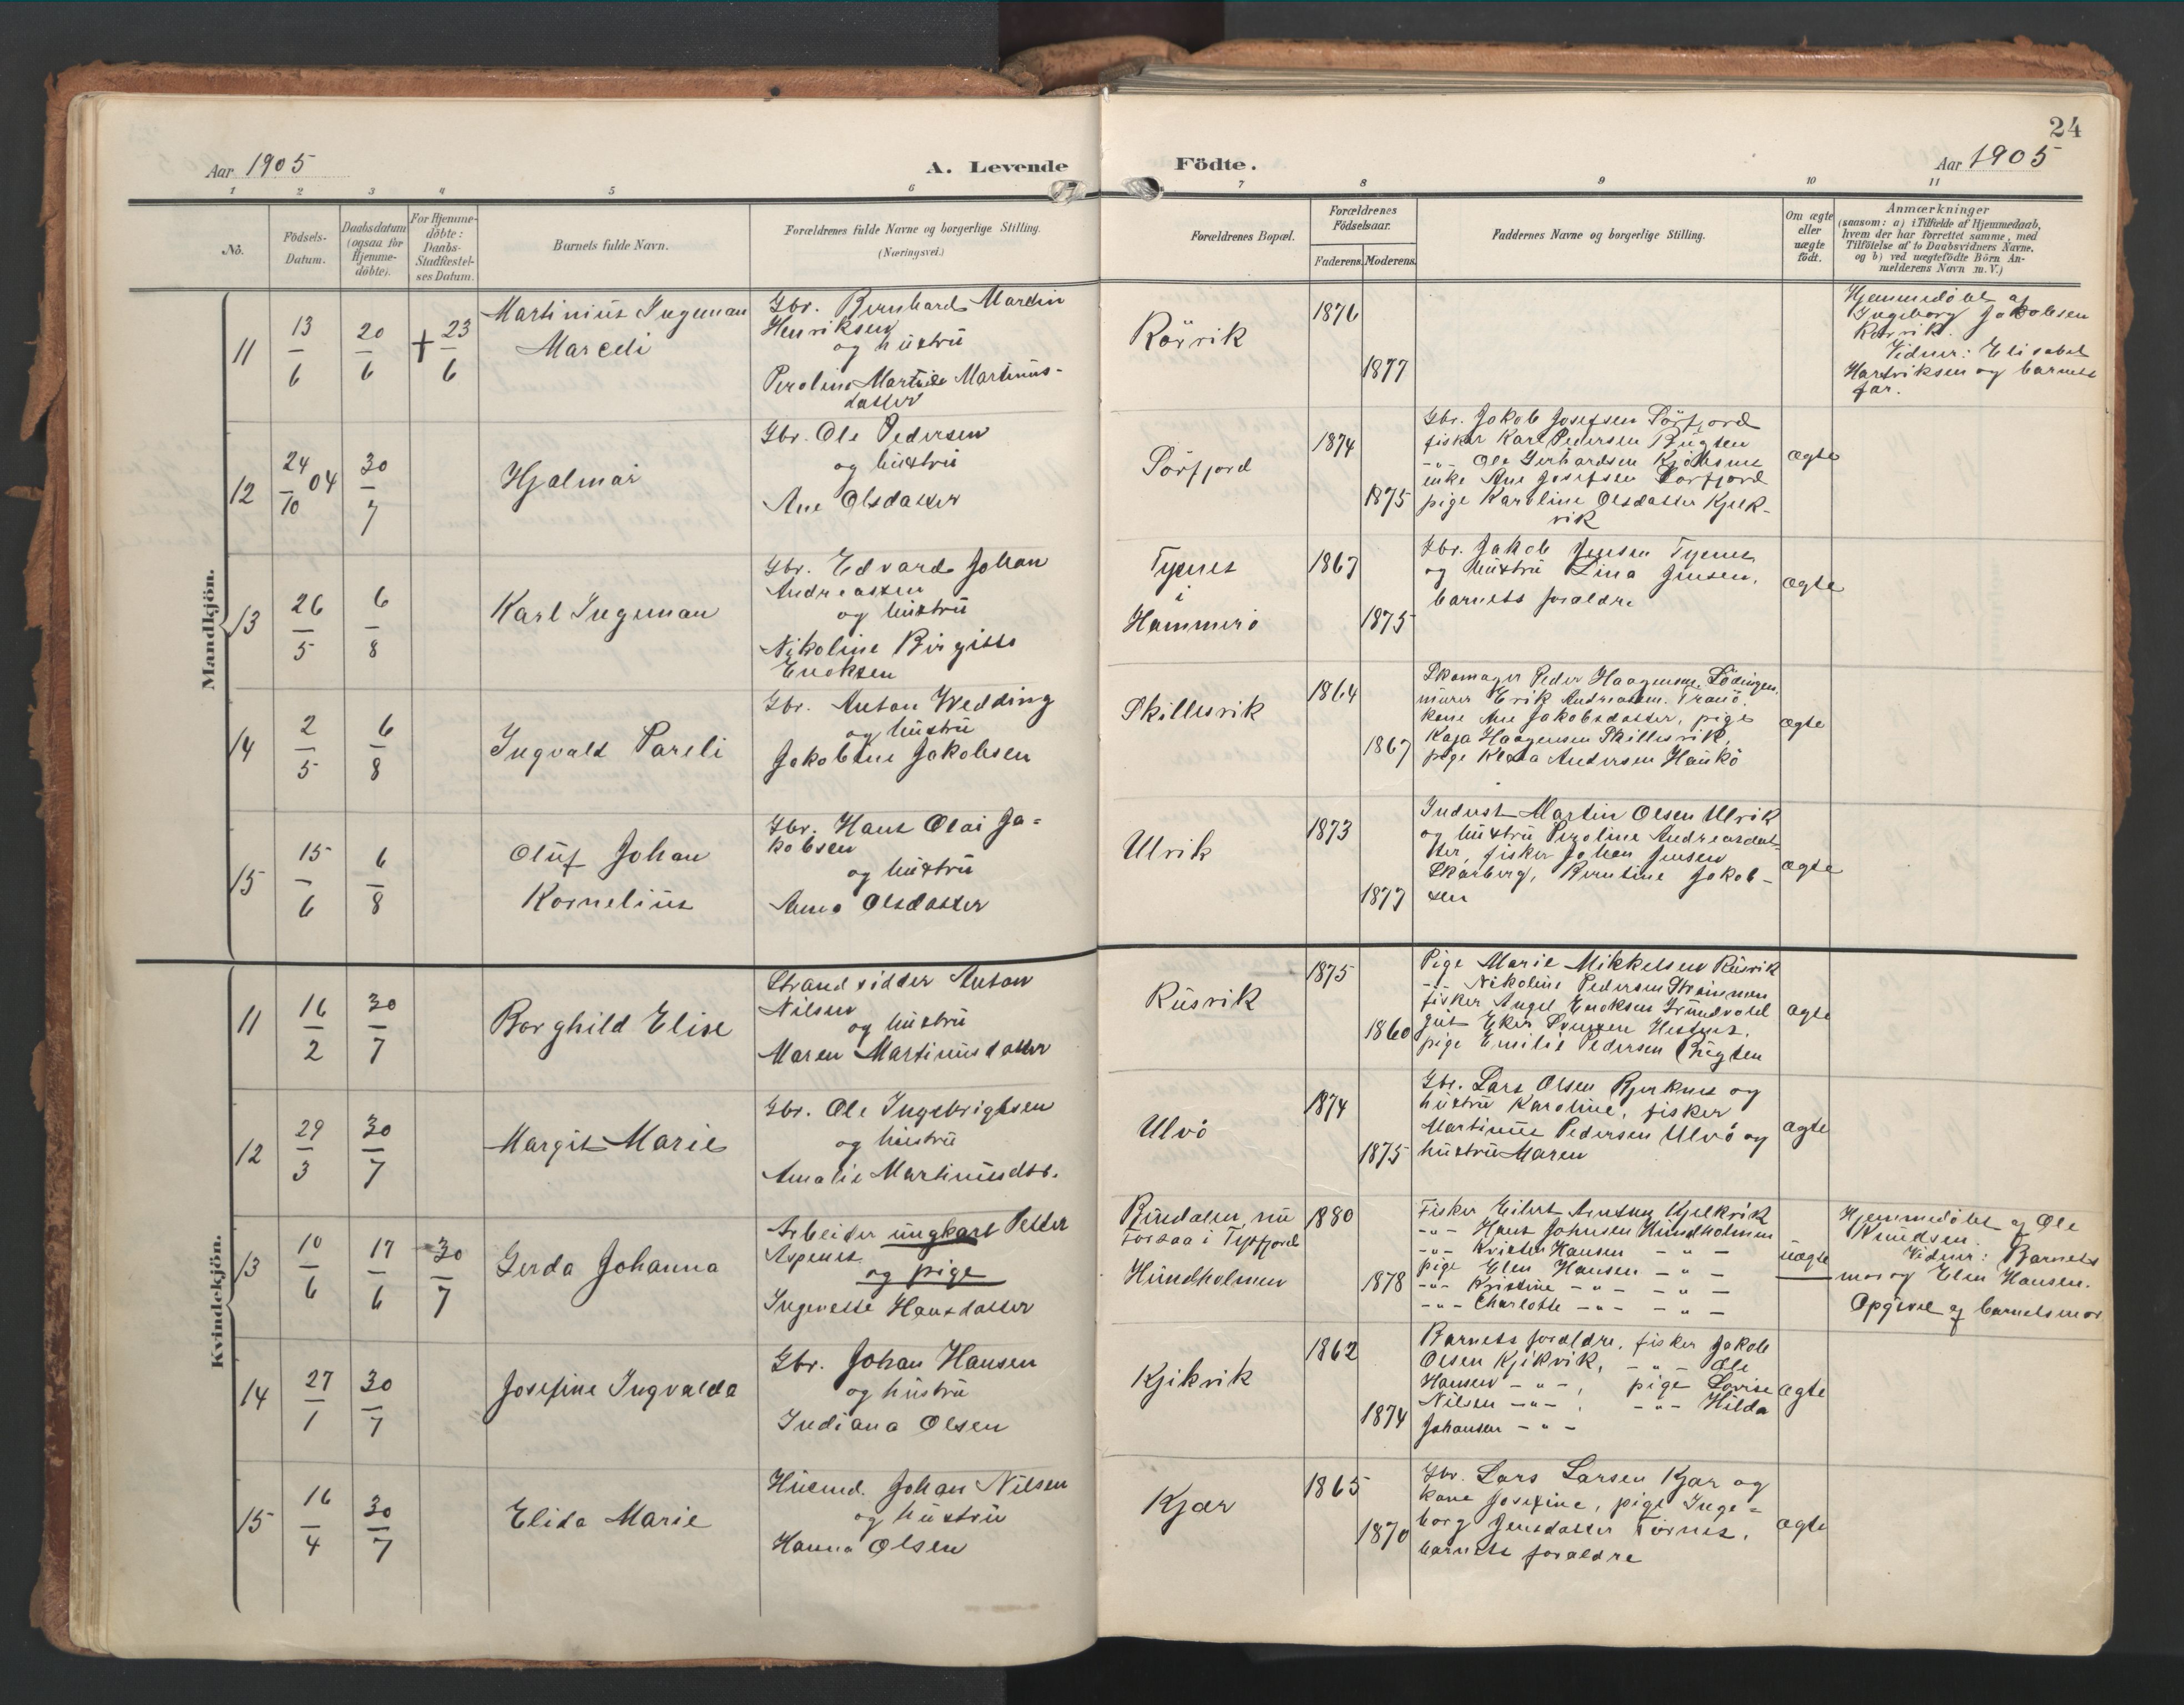 24
Aar 1905
A. Levende
Födte.
Aar 1905
1 2 3 4 5 6 7 8 9 10 11
No.
Födsels-
Datum.
Daabsdatum
(ogsaa for
Hjemme-
döbte).
For Hjemme-
döbte:
Daabs-
Stadfæstel-
ses Datum.
Barnets fulde Navn.
Forældrenes fulde Navne og borgerlige Stilling.
(Næringsvei.)
Forældrenes Bopæl.
Forældrenes
Födselsaar.
Faderens. Moderens.
Faddernes Navne og borgerlige Stilling.
Om ægte
eller
uægte
födt.
Anmærkninger
(saasom: a) i Tilfælde af Hjemmedaab,
hvem der har forrettet samme, med
Tilföielse af to Daabsvidners Navne.
og b) ved uægtefödte Börn An-
melderens Navn m. V.)
Mandkjön.
11
13/6
20/6
+ 23/6
Martinius Ingeman
Mareli
Gbr. Bernhard Martin
Henriksen
og hustru
Perolina Martine Martinus-
datter
Rörvik
1876
1877
Hjemmedöbt af
Ingeborg Jakobsen
Rörvik.
Vidner: Elisabet
Hartviksen og barnets
far.
12
24/10 04
30/7
Hjalmar
Gbr. Ole Pedersen
og hustru
Ane Olsdatter
Sörfjord
1874
1875
Gbr. Jakob Josefsen Sörfjord
fisker Karl Pedersen Bugten
-"- Ole Gerhardsen
enke Ane Josefsen Sörfjord
pige Karoline Olsdatter Kjelk-
vik
ægte
13
26/5
6/8
Karl Ingeman
Gbr. Edvard Johan
Andreassen
og hustru
Nikoline Birgitte
Enoksen
Tyenes
i
Hammerö
1867
1875
Gbr. Jakob Jensen Tyenes
og hustru Lina Jensen,
barnets forældre
ægte
14
2/5
6/8
Ingvald Pareli
Gbr. Anton Wedding
og hustru
Jakobine Jakobsen
Skillesvik
1864
1867
Skomager Peder Haagensen, Lödingen,
murer Erik Andreassen. Tranö,
kone Ane Jakobsdatter, pige
Kaja Haagensen Skillesvik,
pige Klara Andersen Haukö
ægte
15
15/6
6/8
Oluf Johan
Kornelius
Gbr. Hans Olai Ja-
kobsen
og hustru
Anna Olsdatter
Ulvik
1873
1877
Indust Martin Olsen Ulvik
og hustru Peroline Andreasdat-
ter, fisker Johan Jensen
Skarberg, Berntine Jakob-
sen
ægte
Kvindekjön.
11
16/2
30/7
Borghild Elise
Strandsidder Anton
Nilsen
og hustru
Maren Martinusdatter
Rusvik
1875
1860
Pige Marie Mikkelsen Rusvik
-"- Nikoline Pedersen Strömmen
fisker Angel Enoksen Grundvold
gut Eker Hestnes,
pige Emilie Pedersen Bugten
ægte
12
29/3
30/7
Margit Marie
Gbr. Ole Ingebrigtsen
og hustru
Amalie Martinusdtt.
Ulvö
1874
1875
Gbr. Lars Olsen Bjerknes og
hustru Karoline, fisker
Martinus Pedersen Ulvö og
hustru Maren
ægte
13
10/6
17/6
30/7
Gerda Johanna
Arbeider ungkarl Petter
Aspenes
og pige
Ingenette Hansdatter
Rindalen, nu
Torsaa i Tysfjord
Hundholmen
1880
1878
Fisker Eilert Arntsen Kjelkvik
-"- Hans Johnsen Hundholmen
-"- Kristen Hansen -"-
pige Elen Hansen -"-
-"- Kristine -"- -"-
-"- Charlotte -"- -"-
uægte
Hjemmedöbt af Ole
Knudsen.
Vidner: Barnets
mor og Elen Hansen.
Opgivet af barnets mor
14
27/1
30/7
Josefine Ingvalda
Gbr. Johan Hansen
og hustru
Indiana Olsen
Kjikvik
1862
1874
Barnets forældre, fisker Jakob
Olsen Kjikvik, -"- Ole
Hansen -"-, pige Lovise
Nilsen -"-, -"- Hilda
Johansen -"-
ægte
15
16/4
30/7
Elida Marie
Husmd. Johan Nilsen
og hustru
Hanna Olsen
Kjær
1865
1870
Gbr. Lars Larsen Kjær og
kone Josefine, pige Inge-
borg Jensdatter Törnes,
barnets forældre
ægte